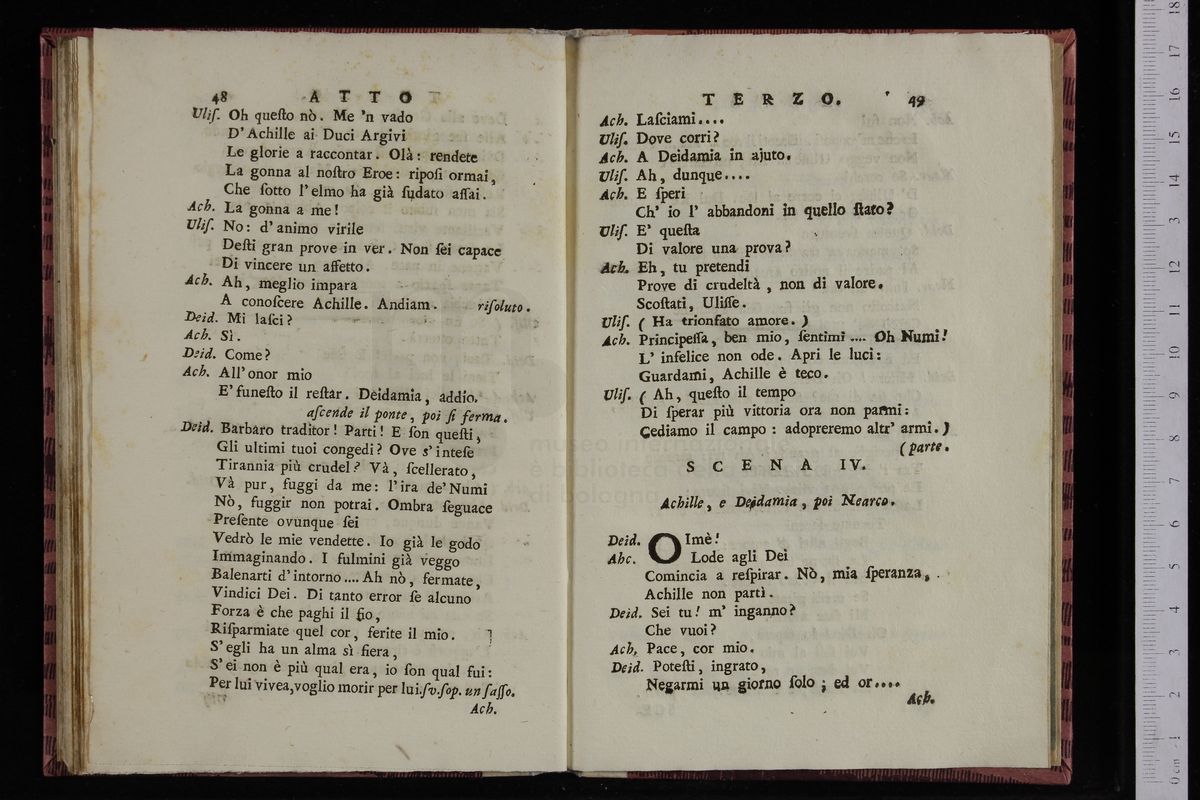 48 A T T O
Uliſ. Oh queſto nò. Me 'n vado
D' Achille ai Duci Argivi
Le glorie a raccontar. Olà: rendete
La gonna al noſtro Eroe: ripoſi ormai,
Che ſotto l' elmo ha già ſudato aſſai.
Ach. La gonna a me!
Uliſ. No: d' animo virile
Deſti gran prove in ver. Non ſei capace
Di vincere un affetto.
Ach. Ah, meglio impara
A conoſcere Achille. Andiam. riſoluto.
Deid. Mi laſci?
Ach. Sì.
Deid. Come?
Ach. All' onor mio
E' funeſto il reſtar. Deidamia, addio.
aſcende il ponte, poi ſi ferma.
Deid. Barbaro traditor! Parti! E ſon queſti,
Gli ultimi tuoi congedi? Ove s' inteſe
Tirannia più crudel? Và, ſcellerato,
Và pur, fuggi da me: l' ira de' Numi
Nò, fuggir non potrai. Ombra ſeguace
Preſente ovunque ſei
Vedrò le mie vendette. Io già le godo
Immaginando. I fulmini già veggo
Balenarti d' intorno .... Ah nò, fermate,
Vindici Dei. Di tanto error ſe alcuno
Forza è che paghi il fio,
Riſparmiate quel cor, ferite il mio.
S' egli ha un alma sì fiera,
S' ei non è più qual era, io ſon qual fui:
Per lui vivea, voglio morir per lui. ſv. ſop. un ſaſſo.
Ach.
T E R Z O. 49
Ach. Laſciami....
Uliſ. Dove corri?
Ach. A Deidamia in ajuto.
Uliſ. Ah, dunque....
Ach. E ſperi
Ch' io l' abbandoni in quello ſtato?
Uliſ. E' queſta
Di valore una prova?
Ach. Eh, tu pretendi
Prove di crudeltà, non di valore.
Scoſtati, Uliſſe.
Uliſ. ( Ha trionfato amore. )
Ach. Principeſſa, ben mio, ſentimi .... Oh Numi!
L' infelice non ode. Apri le luci:
Guardami, Achille è teco.
Uliſ. ( Ah, queſto il tempo
Di ſperar più vittoria ora non parmi:
Cediamo il campo: adopreremo altr' armi. )
(parte.
S C E N A IV.
Achille, e Deidamia, poi Nearco.
Deid. OImè!
Ahc. Lode agli Dei
Comincia a reſpirar. Nò, mia ſperanza,
Achille non partì.
Deid. Sei tu! m' inganno?
Che vuoi?
Ach. Pace, cor mio.
Deid. Poteſti, ingrato,
Negarmi un giorno ſolo; ed or....
Ach.